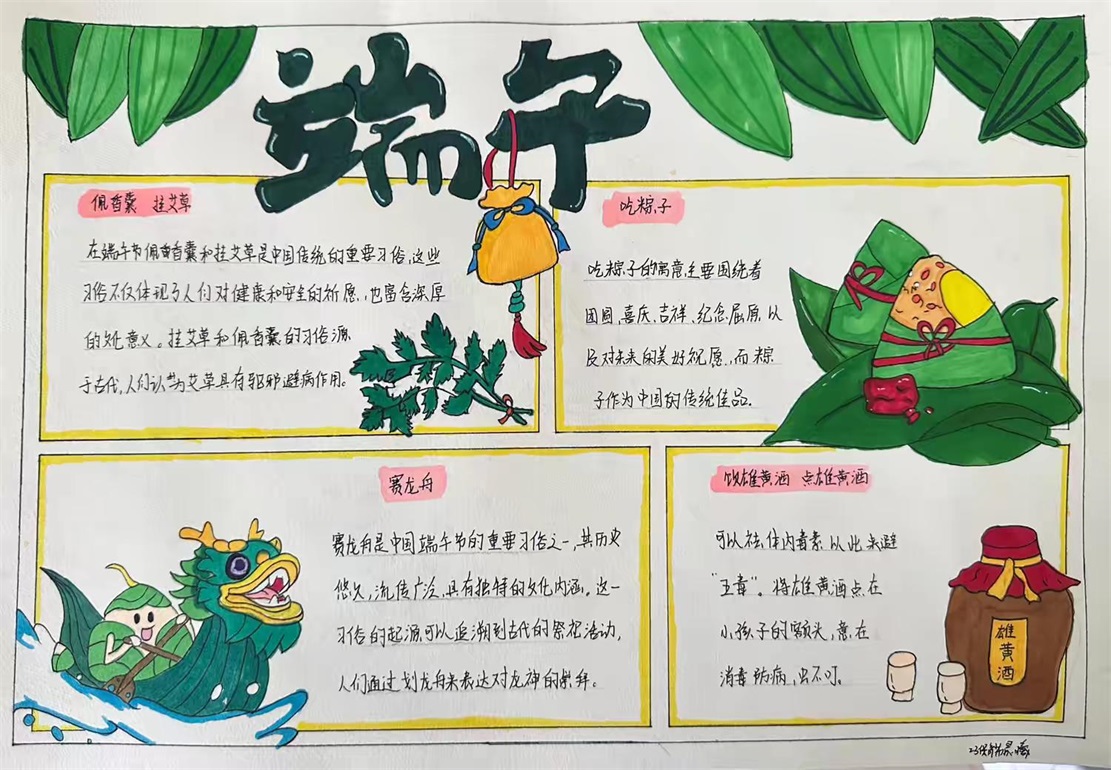 端午
佩香囊 挂艾草
在端午节佩香囊和挂艾草是中国传统的重要习俗,这些
习俗不仅体现了人们对健康和安全的祈愿,也富含深厚
的文化意义。挂艾草和佩香囊的习俗源
于古代,人们认为艾草具有驱邪避病作用。
吃粽子
吃粽子的寓意主要围绕着
团圆、喜庆、吉祥、纪念屈原,以
及对未来的美好祝愿,而粽
子作为中国的传统佳品.
赛龙舟
赛龙舟是中国端午节的重要习俗之一,其历史
悠久,流传广泛,具有独特的文化内涵。这一
习俗的起源可以追溯到古代的祭祀活动,
人们通过划龙舟来表达对龙神的崇拜。
饮雄黄酒 点雄黄酒
可以祛体内毒素,以此来避
"五毒"。将雄黄酒点在
小孩子的额头,意在
消毒防病,虫不叮。
雄黄酒